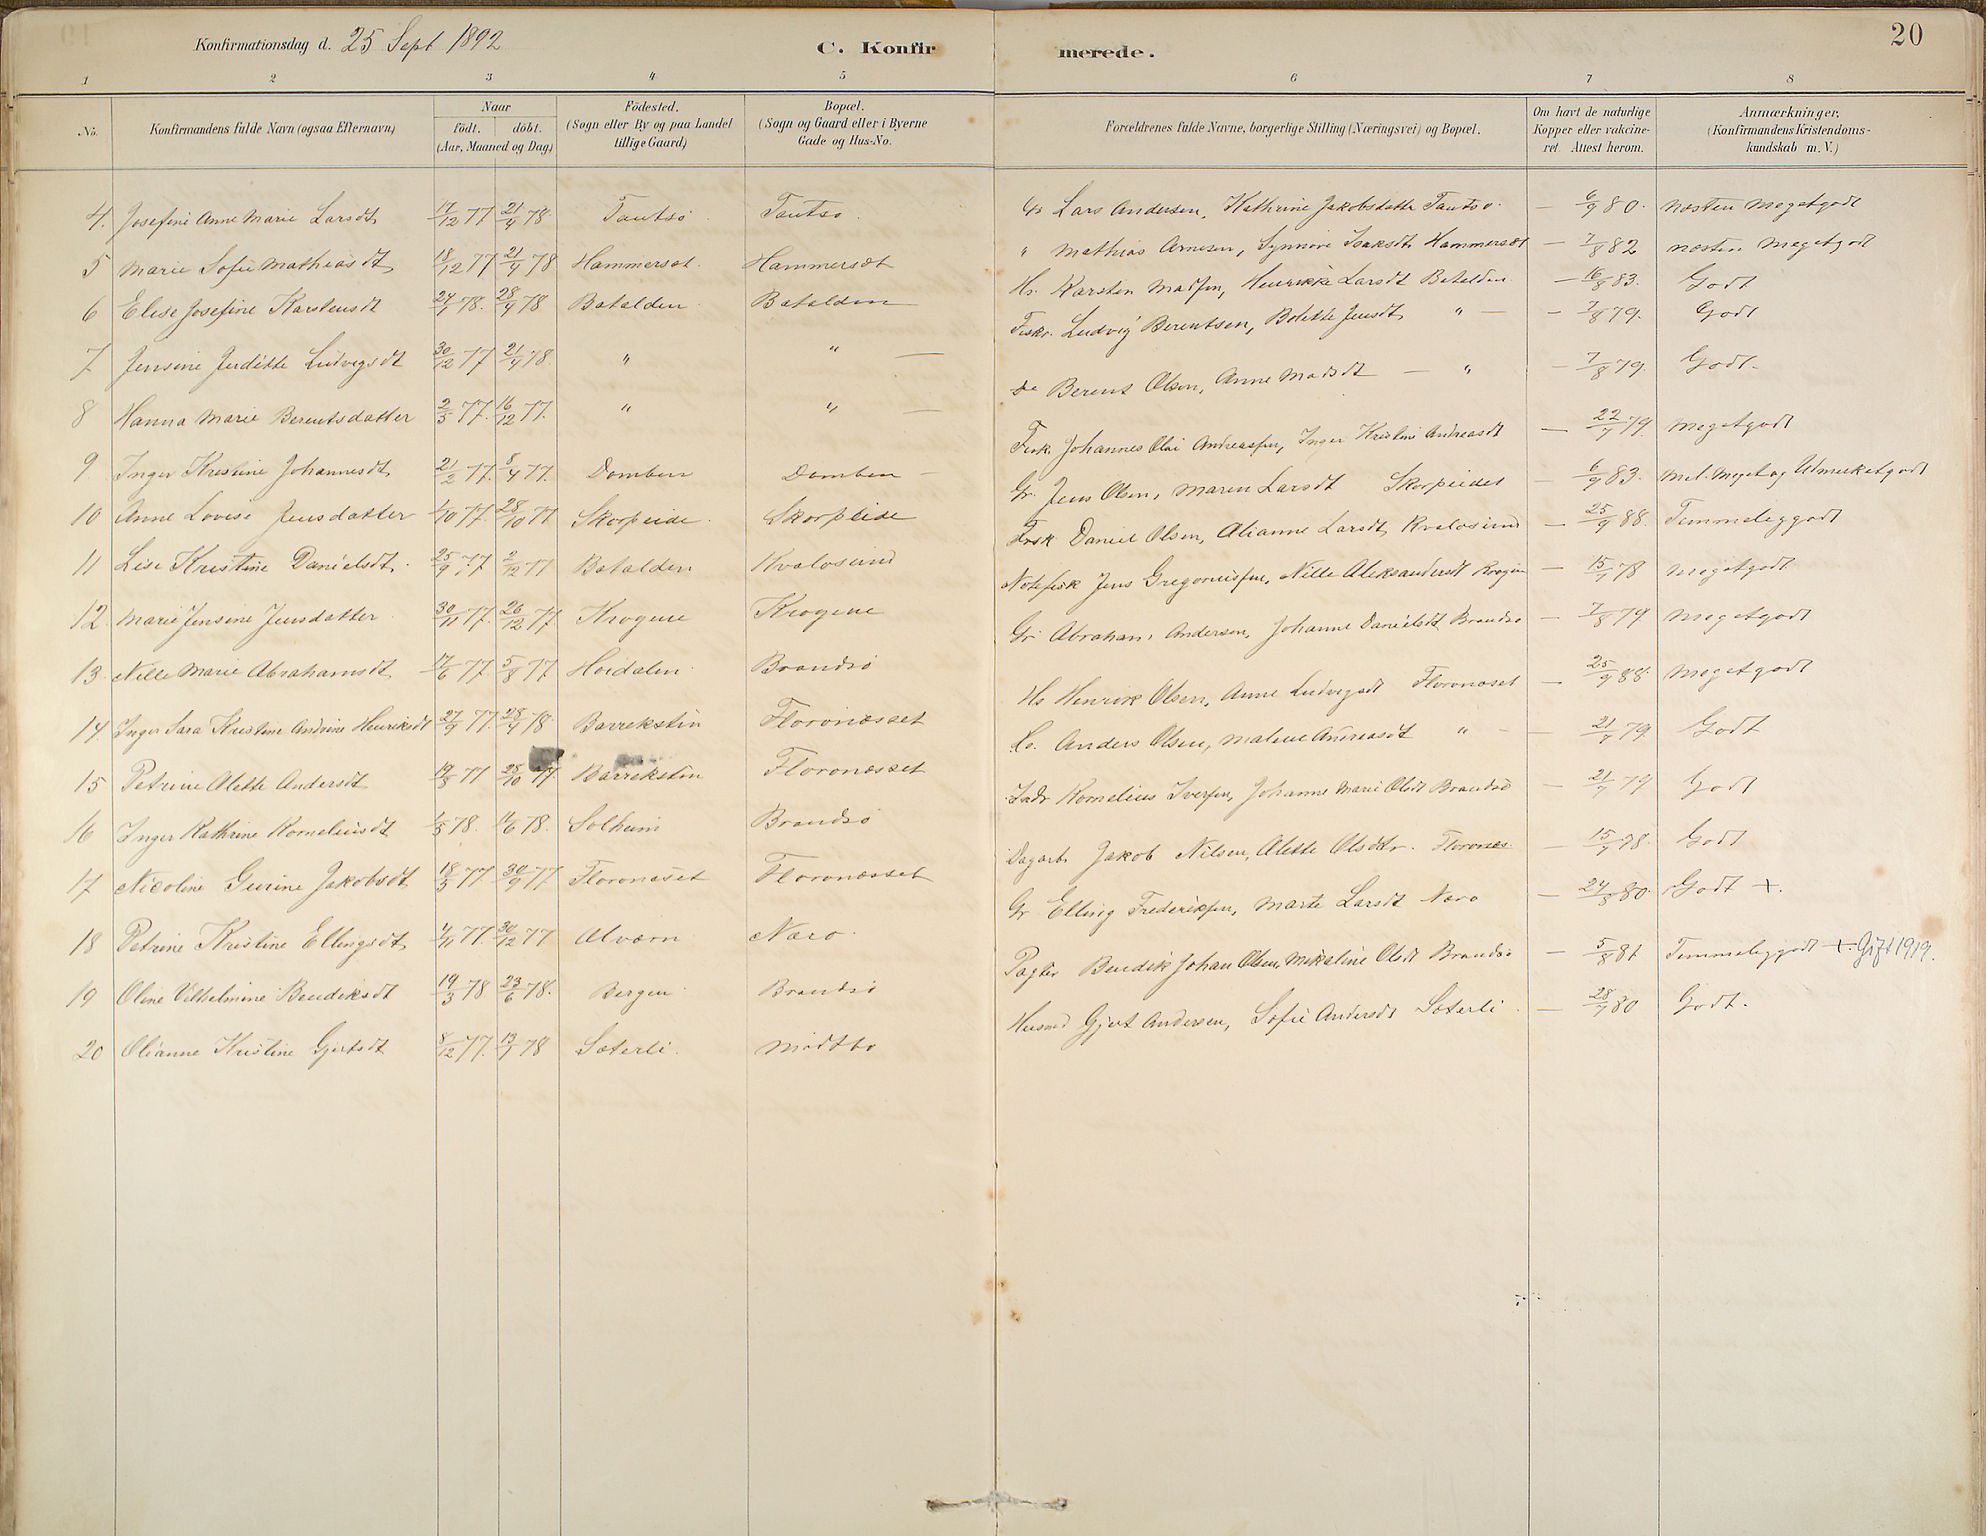 Konfirmationsdag d. 25 Sept 1892 C. Konfir merede. 20
1 2 3 4 5 6 7 8
No. Konfirmandens fulde Navn (ogsaa Efternavn) Naar födt. döbt. (Aar, Maaned og Dag) Födested. (Sogn eller By og paa Landet tillige Gaard) Bopæl. (Sogn og Gaard eller i Byerne Gade og Hus-No. Forældrenes fulde Navne, borgerlige Stilling (Næringsvei) og Bopæl. Om havt de naturlige Kopper eller vakcineret. Attest herom. Anmærkninger. (Konfirmandens Kristendomskundskab m. V.)
4. Josefine Anne Marie Larsdt 17/12 77 21/4 78 Tautsö Tautsö Lars Andersen, Kathrine Jakobsdatter Tautsö — 6/9 80. næsten megetgodt
5 Marie Sofie Mathiasdt 18/12 77 21/4 78 Hammerset Hammersæt " Mathias Arnesen, Synnöve Isaksdt Hammersæt — 7/8 82 næsten megetgodt
6 Elise Josefine Karstensdt 78. 28/4 78 Batalden Batalden Hs. Karsten Madsen, Henrikke Larsdt Batalden — 16/8 83. Godt
7 Jensine Juditte Ludvigsdt 30/12 77 21/4 78 " " — Fisker. Ludvig Berentsen, Bolette Jensdt " — — 7/8 79. Godt
8 Hanna Marie Berentsdatter 2/5 77. 16/12 77. " " — Do Berent Olsen, Anne Madsdt — " — 7/8 79. Godt.
9 Inger Kristine Johannesdt 21/2 77. 8/4 77. Domben Domben — Fisk. Johannes Andreassen, Inger Kristine Andreasdt — 22/7 79. megetgodt
10 Anne Lovise Jensdatter 77. 28/10 77 Skorpeide Skorpeide Gr. Jens Olsen, Maren Larsdt Skorpeidet — 6/9 83. mel. Meget og Udmerketgodt
11 Lise Kristine Danielsdt. 25/9 77 2/12 77 Batalden Kvalosund Fisk Daniel Olsen, Alianne Larsdt, Kvalosund — 25/9 88. Temmeliggodt
12 Marie Jensine Jensdatter 30/11 77. 26/12 77 Krogene Krogene Notefisk Jens Gregoriussen, Nille Aleksandersdt — 15/7 78 megetgodt
13. Nille Marie Abrahamsdt 17/6 77. 5/8 77 Hoidalen Brandsö Gr. Abraham Andersen, Johanne Danielsdt Brandsö — 7/8 79 megetgodt
14. Inger Sara Kristine Andrine Henriksdt 27/9 77. 28/4 78. Barrekstin Floronæsset Hs Henrik Olsen, Anne Ludvigsdt Floronæset — 25/9 88. megetgodt
15 Petrine Olette Andersdt 19/8 77 28/10 77 Barrekstin Floronæsset Anders Olsen, Malene Andreasdt " — — 21/7 79 Godt
16 Inger Kathrine Korneliusdt 78. 78. Solheim Brandsö Kornelius Iversen, Johanne Marie Olsdt Brandsö — 21/7 79 Godt
17 Nicoline Gurine Jakobsdt 18/5 77. 30/9 77 Floronæset Floronæsset Dagarb. Jakob Nilsen, Alette Olsdtr. Floronæs. — 15/7 78. Godt
18 Petrine Kristine Ellingsdt 4/11 77. 30/12 77 Alværn Nærö. Gr Elling Frederiksen, Marte Larsdt Nærö — 24/8 80. Godt +.
19 Oline Vilhelmine Bendiksdt 19/3 78 23/6 78. Bergen Brandsö Pagter Bendik Johan Olsen, Mikaline Olsdt Brandsö — 5/8 81 Temmeliggodt +. Gift 1919.
20 Olianne Kristine Gjertsdt 8/12 77. 78 Sæterli. Midtbö Husmd Gjert Andersen, Sofie Andersdt Sæterli. — 28/7 80 Godt.